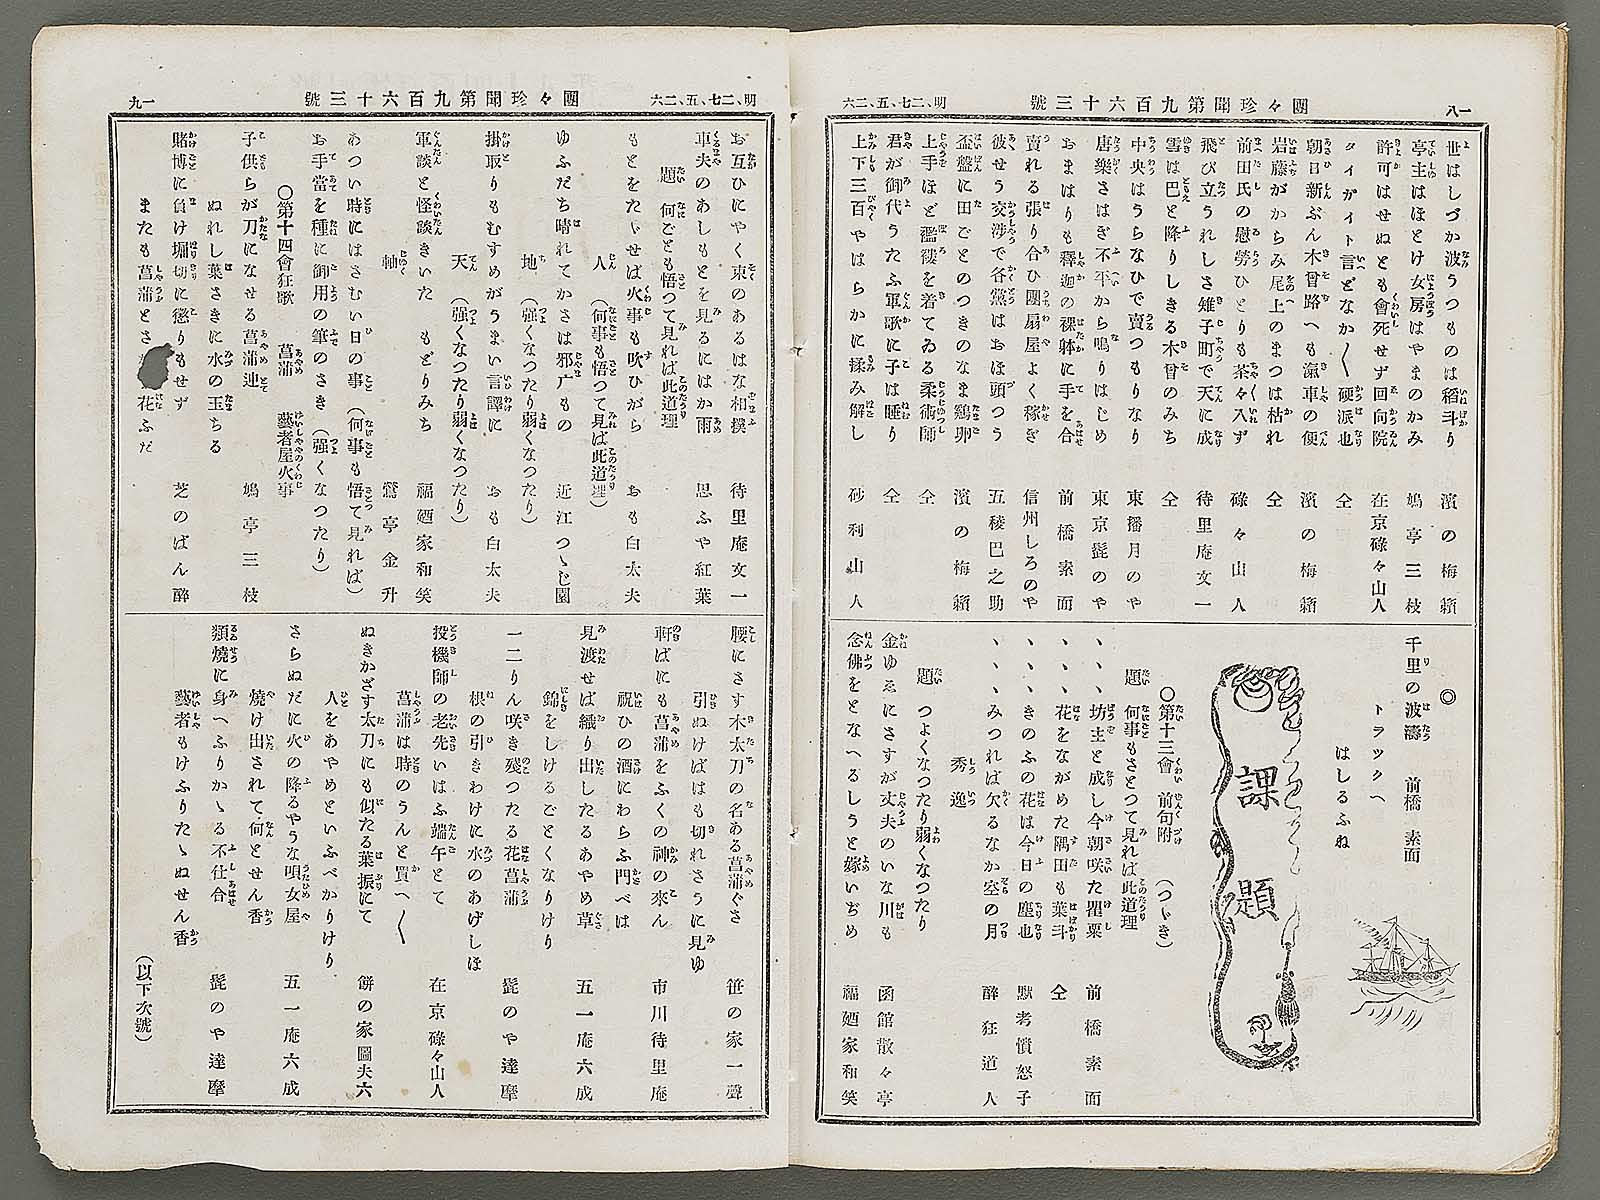 一八
團々珍聞第九百六十三號
明、二七、五、二六
世はしづか波うつものは稻斗り 濱の梅籟
亭主はほとけ女房はやまのかみ 鳩亭三枝
許可はせぬとも會死せず回向院 在京碌々山人
タイガイト言どなか〱硬派也 仝
朝日新ぶん木曾路へも滊車の便 濱の梅籟
岩藤がからみ尾上のまつは枯れ 仝
前田氏の慰勞ひとりも茶々入ず 碌々山人
飛び立うれしさ雉子町で天に成 待里庵文一
雪は巴と降りしきる木曾のみち 仝
中央はうらなひで賣つもりなり 東播月のや
唐樂さはぎ不平から鳴りはじめ 東京髭のや
おまはりも釋迦の裸躰に手を合 前橋素面
賣れる張り合ひ團扇屋よく稼ぎ 信州しろのや
彼せう交渉で各黨はおほ頭つう 五稜巴之助
盃盤に田ごとのつきのなま鷄卵 濱の梅籟
上手ほど襤褸を着てゐる柔術師 仝
君が御代うたふ軍歌に子は睡り 仝
上下三百やはらかに揉み解し 砂利山人
◎
千里の波濤 前橋 素面
トラックへ
はしるふね
課題
〇第十三會 前句附 (つゞき)
題 何事もさとつて見れば此道理
、、、坊主と成し今朝咲た罌粟 前橋素面
、、、花をながめた隅田も葉斗 仝
、、、きのふの花は今日の塵也 默考憤怒子
、、、みつれば欠るなか空の月 醉狂道人
秀逸
題 つよくなつたり弱くなつたり
金ゆゑにさすが丈夫のいな川も 函館散々亭
念佛をとなへるしうと嫁いぢめ 福廼家和笑
明、二七、五、二六
團々珍聞第九百六十三號
一九
お互ひにやく束のあるはな相撲 待里庵文一
車夫のあしもとを見るにはか雨 思ふや紅葉
題 何ごとも悟つて見れば此道理
人 (何事も悟つて見ば此道理)
もとをたゞせば火事も吹ひがら おも白太夫
地 (強くなつたり弱くなつたり)
ゆふだち晴れてかさは邪广もの 近江つゝじ園
天 (強くなつたり弱くなつたり)
掛取りもむすめがうまい言譯に おも白太夫
軍談と怪談きいた もどりみち 福廼家和笑
軸
鶯亭金升
あつい時にはさむい日の事 (何事も悟て見れば)
お手當を種に御用の筆のさき (強くなつたり)
〇第十四會狂歌 菖蒲 藝者屋火事
子供らが刀になせる菖蒲迚
ぬれし葉さきに水の玉ちる 鳩亭三枝
賭博に負け堀切に懲りもせず
またも菖蒲とさ 花ふだ 芝のばん醉
腰にさす木太刀の名ある菖蒲ぐさ
引ぬけばはも切れさうに見ゆ 笹の家一聲
軒ばにも菖蒲をふくの神の來ん
祝ひの酒にわらふ門べは 市川待里庵
見渡せば織り出したるあやめ草
錦をしけるごとくなりけり 五一庵六成
一二りん咲き殘つたる花菖蒲
根の引きわけに水のあげしほ 髭のや達摩
投機師の老先いはふ端午とて
菖蒲は時のうんと買へ〱 在京碌々山人
ぬきかざす太刀にも似たる葉振にて
人をあやめといふべかりけり 餠の家圖夫六
さらぬだに火の降るやうな唄女屋
燒け出されて何とせん香 五一庵六成
類燒に身へふりかゝる不仕合
藝者もけふりたゝぬせん香 髭のや達摩
(以下次號)